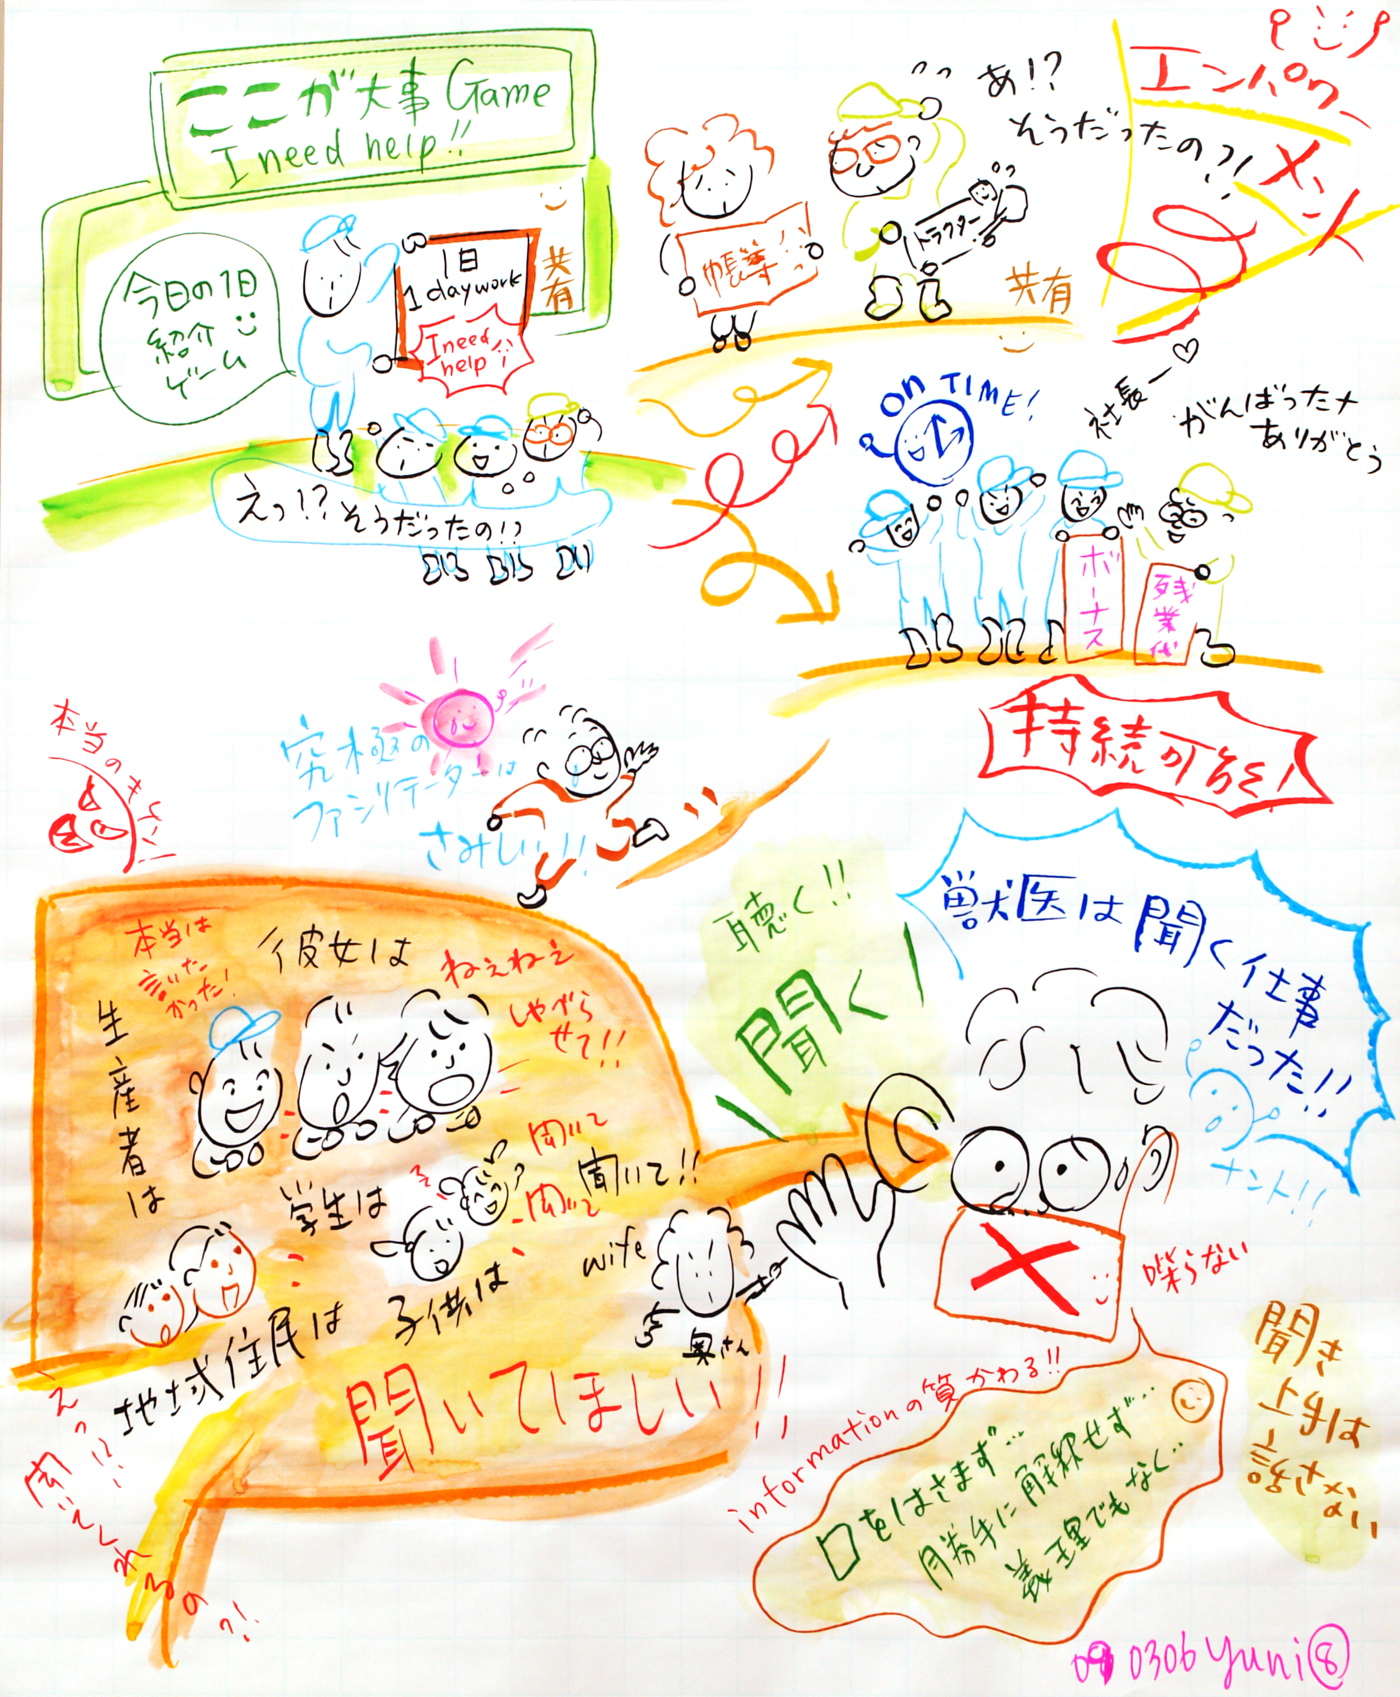 ここが大事 Game
I need help!!
今日の1日
紹介
ゲーム
1日
1 day work
I need
help
共有
えっ!? そうだったの!?
帳簿
トラクター
共有
あ!?
そうだったの?!
エンパワー
メント
ON TIME!
社長ー♡
がんばったナ
ありがとう
ボーナス
残業代
持続可能!
究極の
ファシリテーターは
さみしい!!
本当のキモチ!
本当は
言いた
かった!
彼女は
ねぇねぇ
しゃべら
せて!!
生産者は
学生は
聞いて
聞いて!!
聞いて
子供は
地域住民は
wife
奥さん
聞いてほしい!!
えっ!?
聞いてくれるの?!
聴く!!
聞く!
獣医は聞く仕事
だった!!
ナント!!
喋らない
informationの質かわる!!
口をはさまず…
勝手に解釈せず…
義理でもなく…
聞き
上手は
話さない
090306 yuni⑧